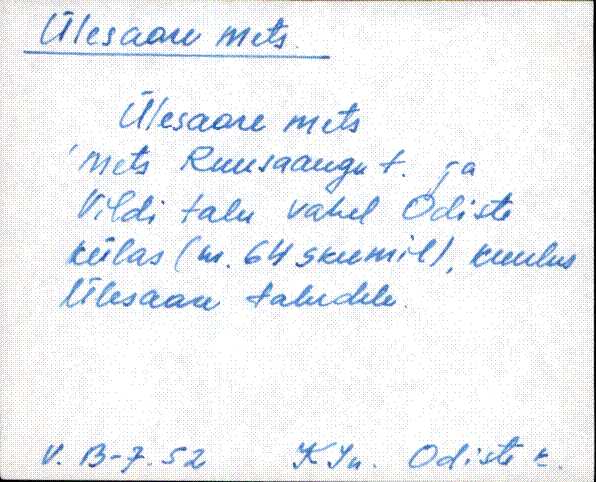 Ülesaare mets.
Ülesaare mets
'mets Ruusaangu t. ja
Vildi talu vahel Odiste
külas (nr. 64 skeemil), kuulus
Ülesaare taludele.
V. B-7.52 KJn. Odiste k.